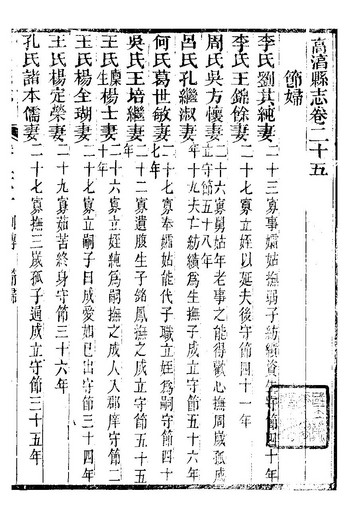 高淳縣志卷二十五
節婦
李氏劉其純妻二十三寡事孀姑撫弱子紡績資生守節四十年
李氏王錦餘妻二十七寡立姪以延夫後守節四十一年
周氏吳方懷妻二十六寡舅姑年老事之能得歡心撫周歲孤成立守節五十八年
呂氏孔繼淑妻年十九夫亡紡績爲生撫子成立守節五十六年
何氏葛世敏妻二十七寡奉孀姑能代子職立姪爲嗣守節四十七年
吳氏王培繼妻二十二寡遺腹生子銘鳳撫之成立守節五十五年
王氏生楊士妻二十六寡立姪純爲嗣撫之成人入郡庠守節二十年
王氏楊全瑚妻二十七寡立嗣子日成愛如已出守節三十四年
王氏楊定榮妻二十九寡茹苦終身守節三十六年
孔氏諸本儒妻二十七寡撫三歲孤子過成立守節三十五年